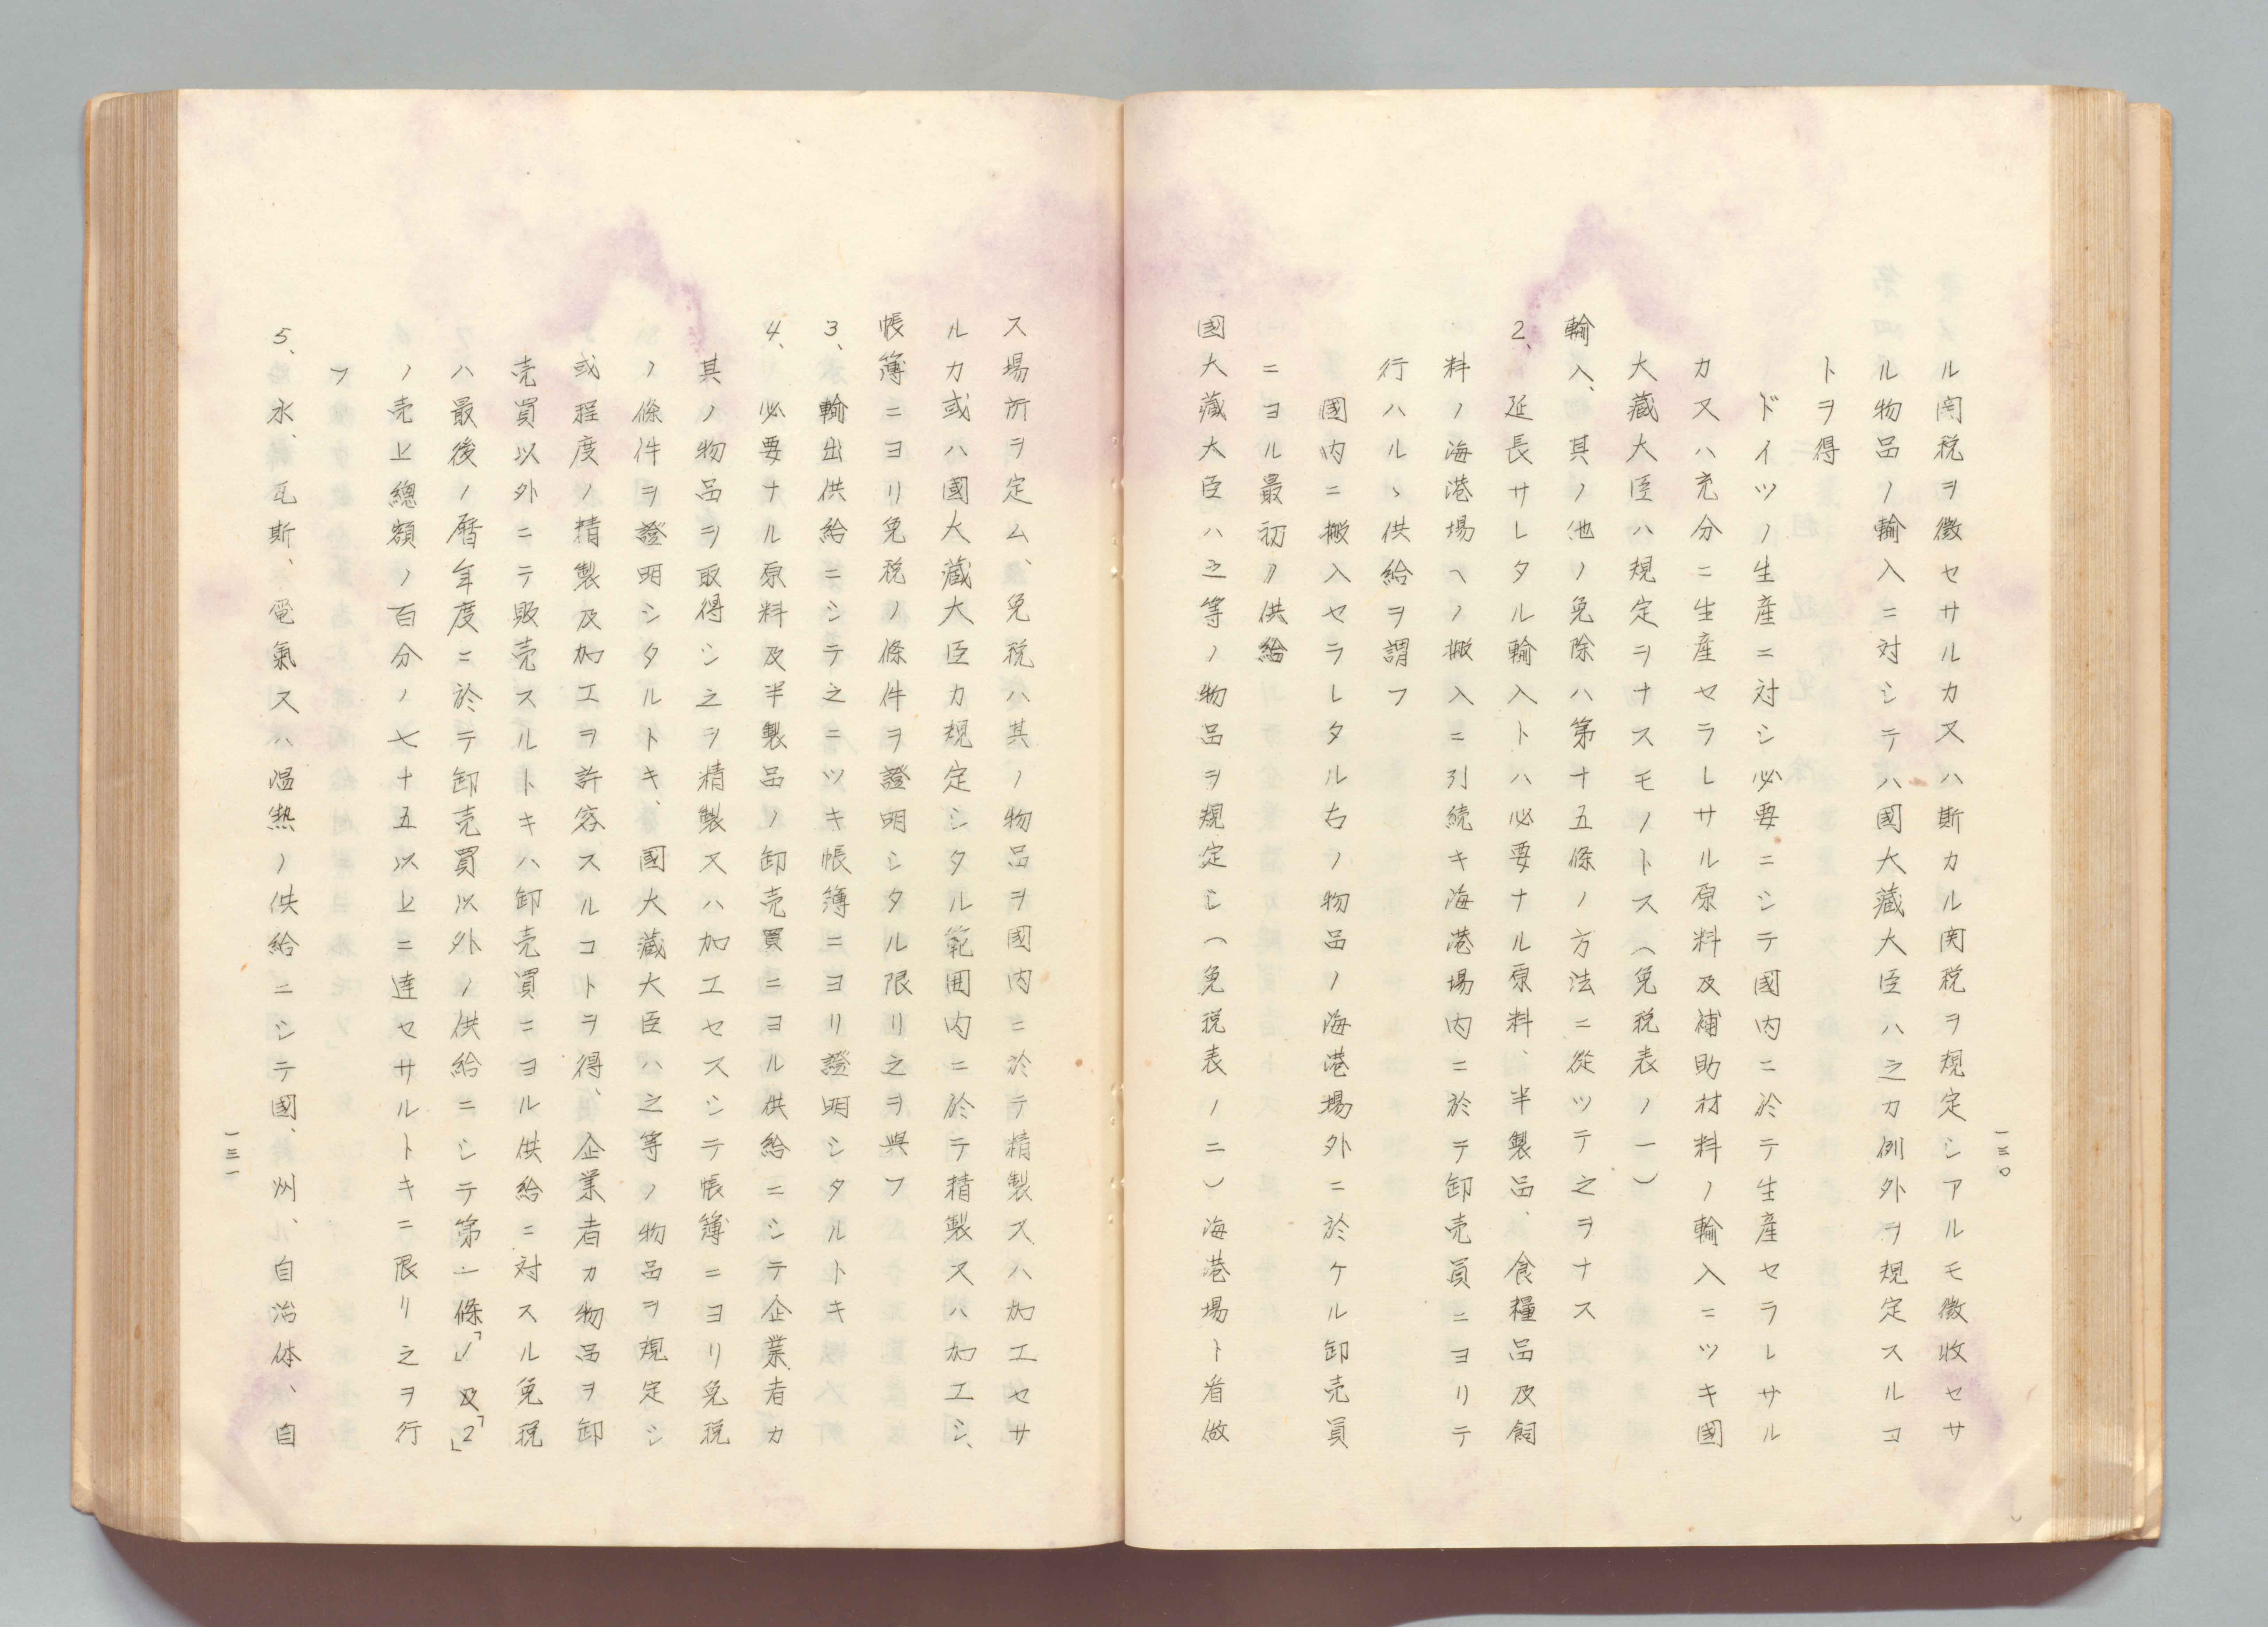 ル関税ヲ徴セサルカ又ハ斯カル関税ヲ規定シアルモ徴收セサ
ル物品ノ輸入ニ対シテハ國大藏大臣ハ之カ例外ヲ規定スルコ
トヲ得
ドイツノ生産ニ対シ必要ニシテ國内ニ於テ生産セラレサル
カ又ハ充分ニ生産セラレサル原料及補助材料ノ輸入ニツキ國
大藏大臣ハ規定ヲナスモノトス(免税表ノ一)
輸入、其ノ他ノ免除ハ第十五條ノ方法ニ從ツテ之ヲナス
2、延長サレタル輸入トハ必要ナル原料、半製品、食糧品及飼
料ノ海港場ヘノ搬入ニ引続キ海港場内ニ於テ卸売員ニヨリテ
行ハルヽ供給ヲ謂フ
國内ニ搬入セラレタル右ノ物品ノ海港場外ニ於ケル卸売員
ニヨル最初ノ供給
國大藏大臣ハ之等ノ物品ヲ規定シ(免税表ノ二)海港場ト看做
一三〇
ス場所ヲ定ム、免税ハ其ノ物品ヲ國内ニ於テ精製又ハ加工セサ
ルカ或ハ國大藏大臣カ規定シタル範囲内ニ於テ精製又ハ加工シ、
帳簿ニヨリ免税ノ條件ヲ證明シタル限リ之ヲ與フ
3、輸出供給ニシテ之ニツキ帳簿ニヨリ證明シタルトキ
4、必要ナル原料及半製品ノ卸売買ニヨル供給ニシテ企業者カ
其ノ物品ヲ取得シ之ヲ精製又ハ加工セスシテ帳簿ニヨリ免税
ノ條件ヲ證明シタルトキ、國大藏大臣ハ之等ノ物品ヲ規定シ
或程度ノ精製及加工ヲ許容スルコトヲ得、企業者カ物品ヲ卸
売買以外ニテ販売スルトキハ卸売買ニヨル供給ニ対スル免税
ハ最後ノ暦年度ニ於テ卸売買以外ノ供給ニシテ第一條「1」及「2」
ノ売上總額ノ百分ノ七十五以上ニ達セサルトキニ限リ之ヲ行
フ
5、水、瓦斯、電氣又ハ温熱ノ供給ニシテ國、州、自治体、自
一三一